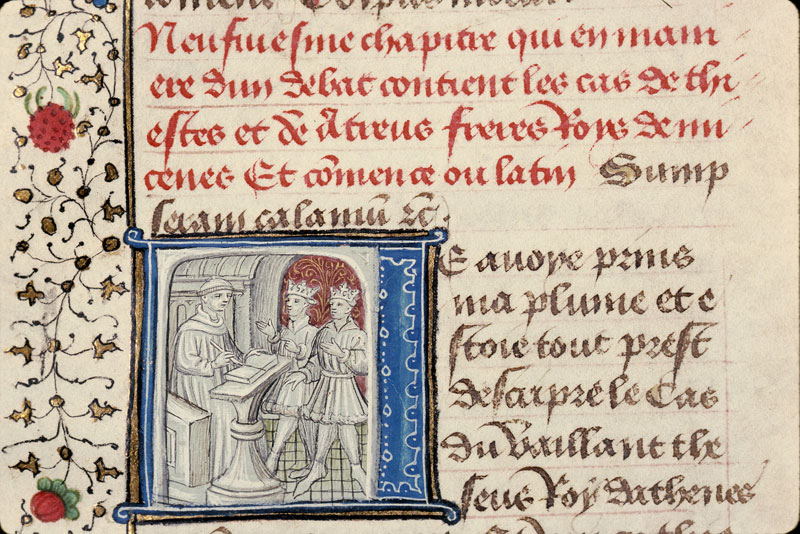 Neufiuesme chapitre qui en mani
ere dun debat contient les cas de thi
estes et de Atreus freres Roys de mi
cenes Et cõmence ou latin Sump
seram calamũ ⁊c̃.
E auoye prins
ma plume et e
stoie tout prest
descripre le Cas
du vaillant the
seus Roy dathenes